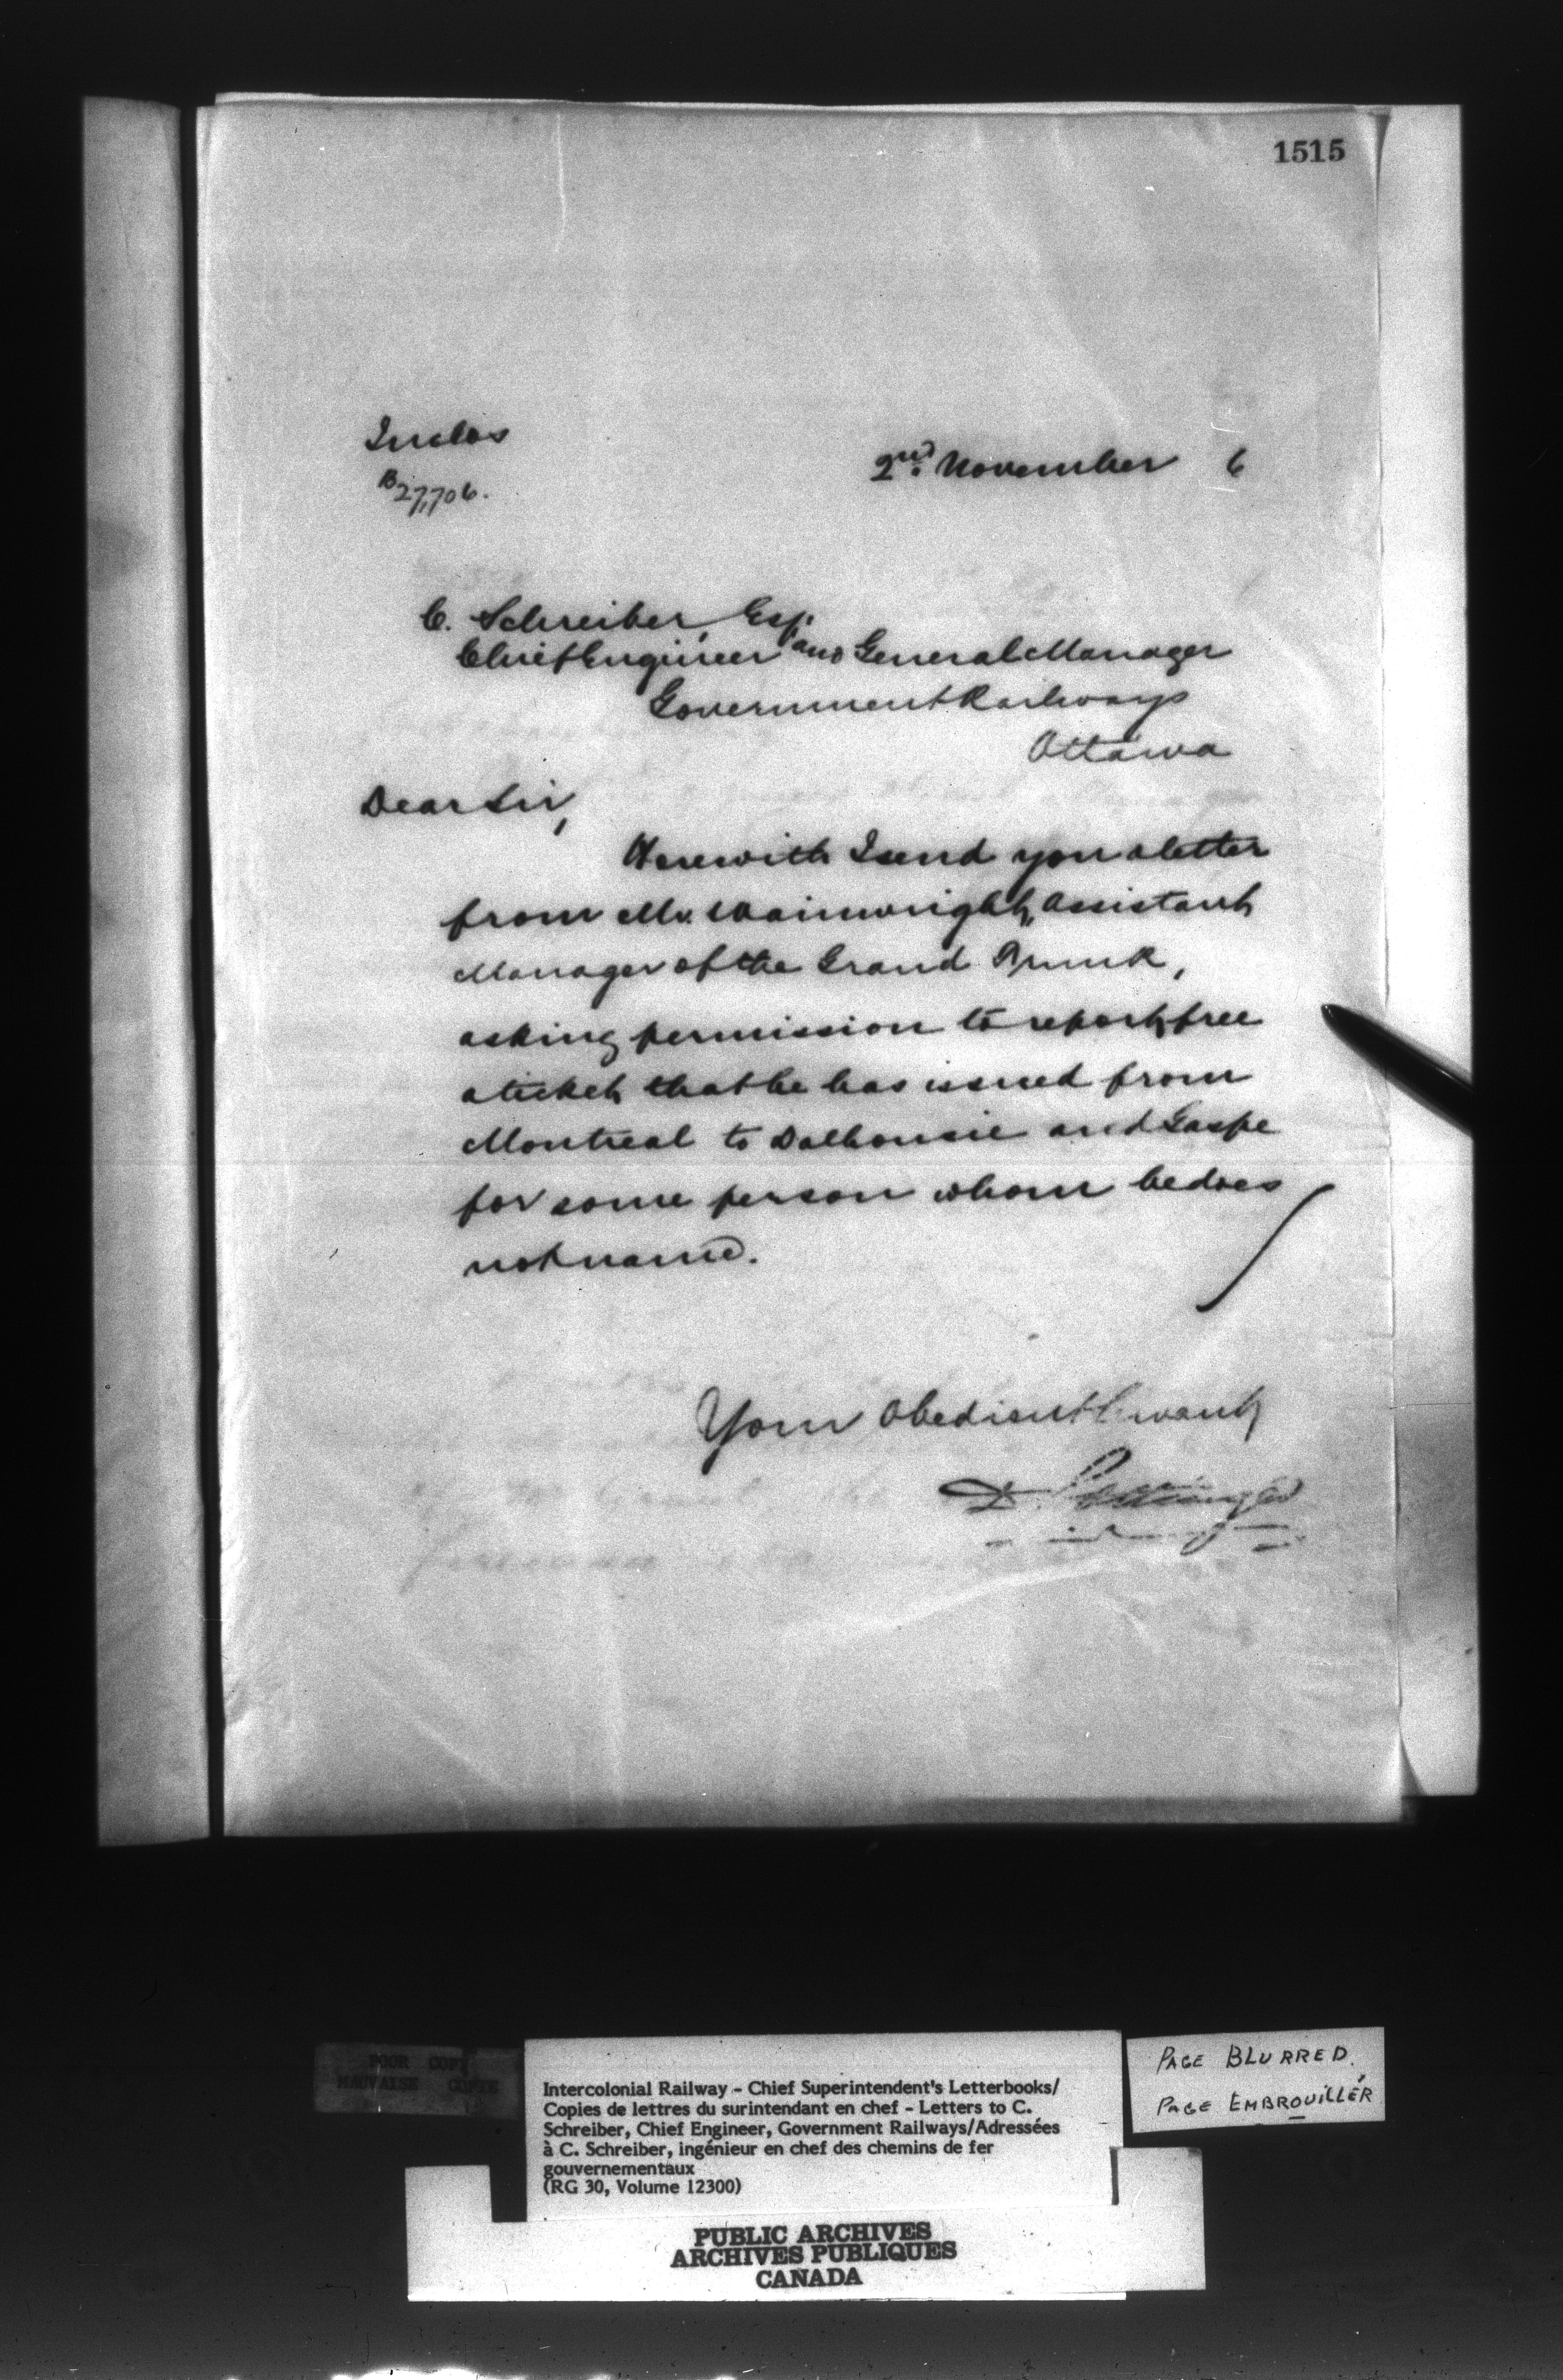 1515
Inclos
B 27,706.
2nd. November 6
C. Schreiber, Esq.
Chief Engineer and General Manager
Government Railways
Ottawa
Dear Sir,
Herewith I send you a letter
from Mr. Wainwright, Assistant
Manager of the Grand Trunk,
asking permission to report free
a ticket that he has issued from
Montreal to Dalhousie and Gaspe
for some person whom he does
not name.
Your Obedient Servant
D. Pottinger
POOR COPY
MAUVAISE COPIE
Intercolonial Railway - Chief Superintendent's Letterbooks/
Copies de lettres du surintendant en chef - Letters to C.
Schreiber, Chief Engineer, Government Railways/Adressées
à C. Schreiber, ingénieur en chef des chemins de fer
gouvernementaux
(RG 30, Volume 12300)
PAGE BLURRED.
PAGE EMBROUILLÉR
PUBLIC ARCHIVES
ARCHIVES PUBLIQUES
CANADA